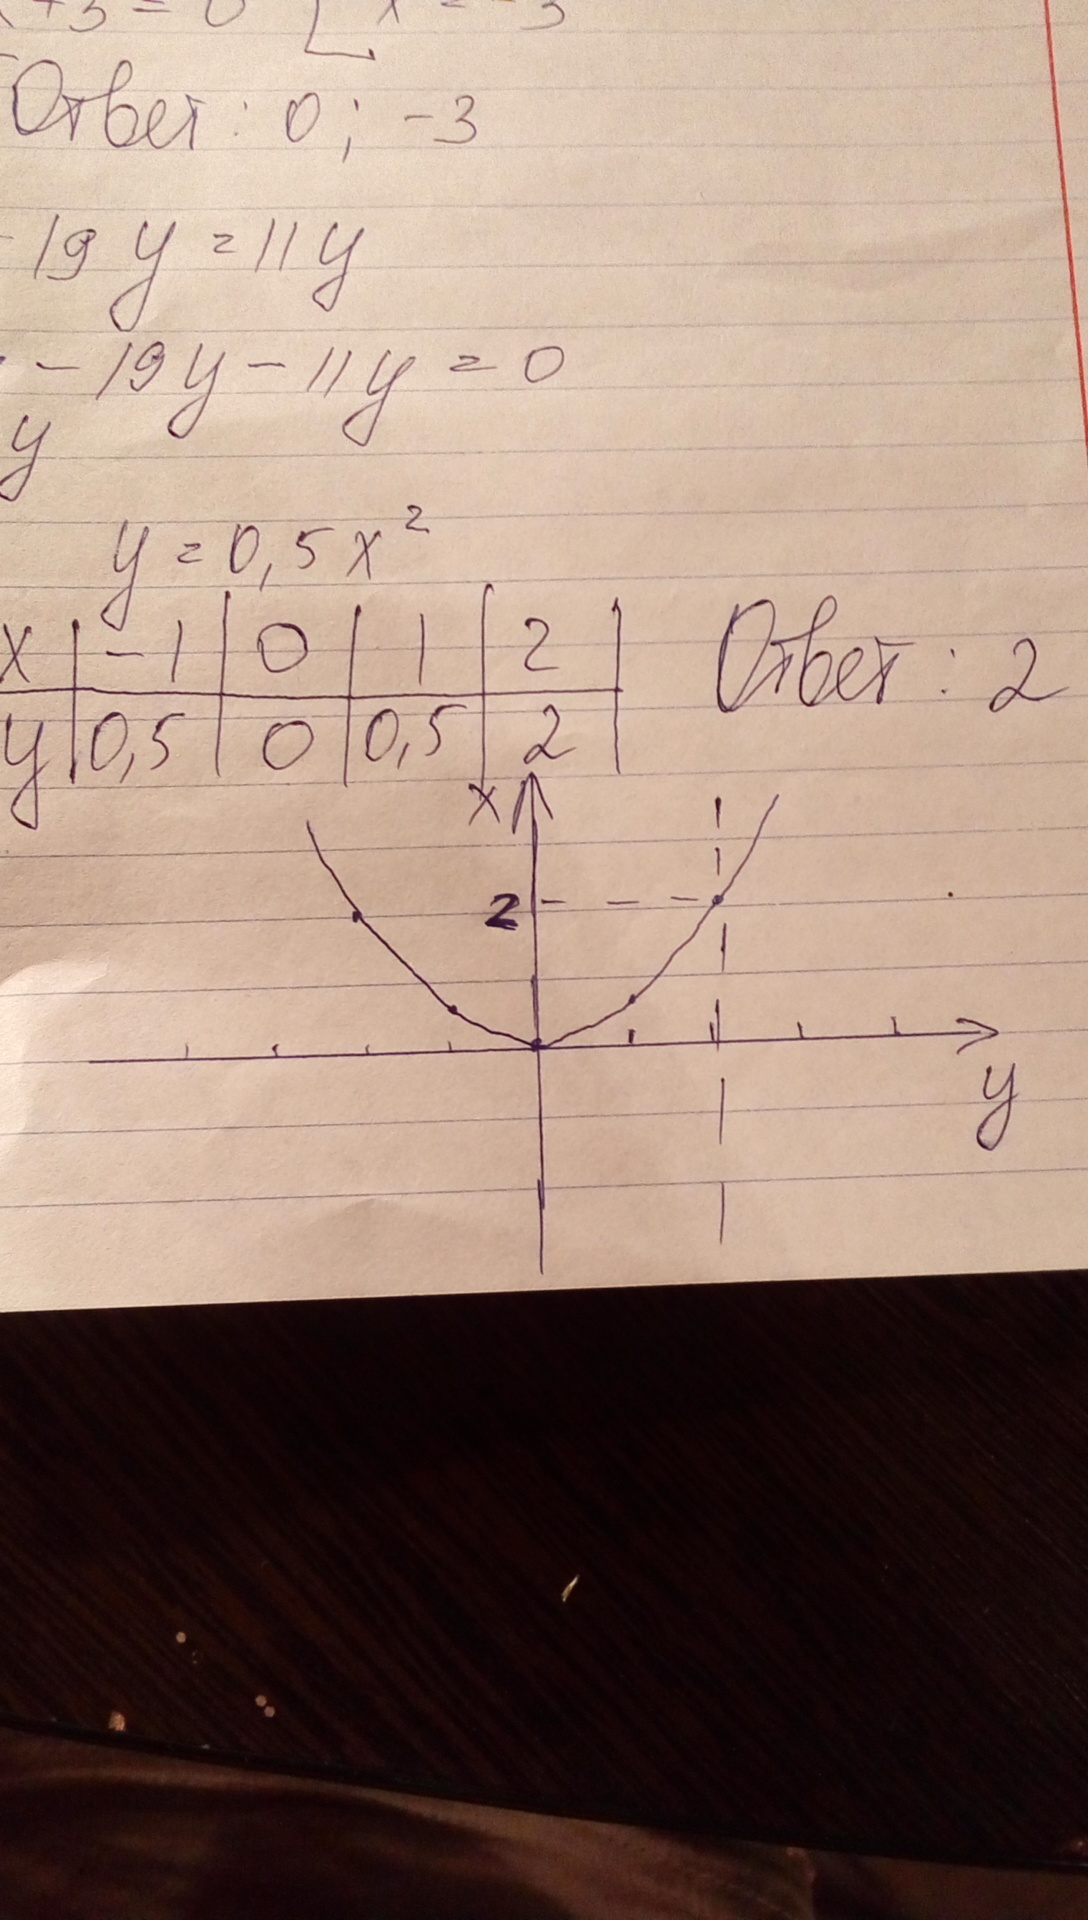 +3=0 [ x=-3
Ответ: 0; -3
-19y=11y
-19y-11y=0
y
y=0,5x²
x | -1 | 0 | 1 | 2 |
y | 0,5 | 0 | 0,5 | 2 |
Ответ: 2
x
2
y